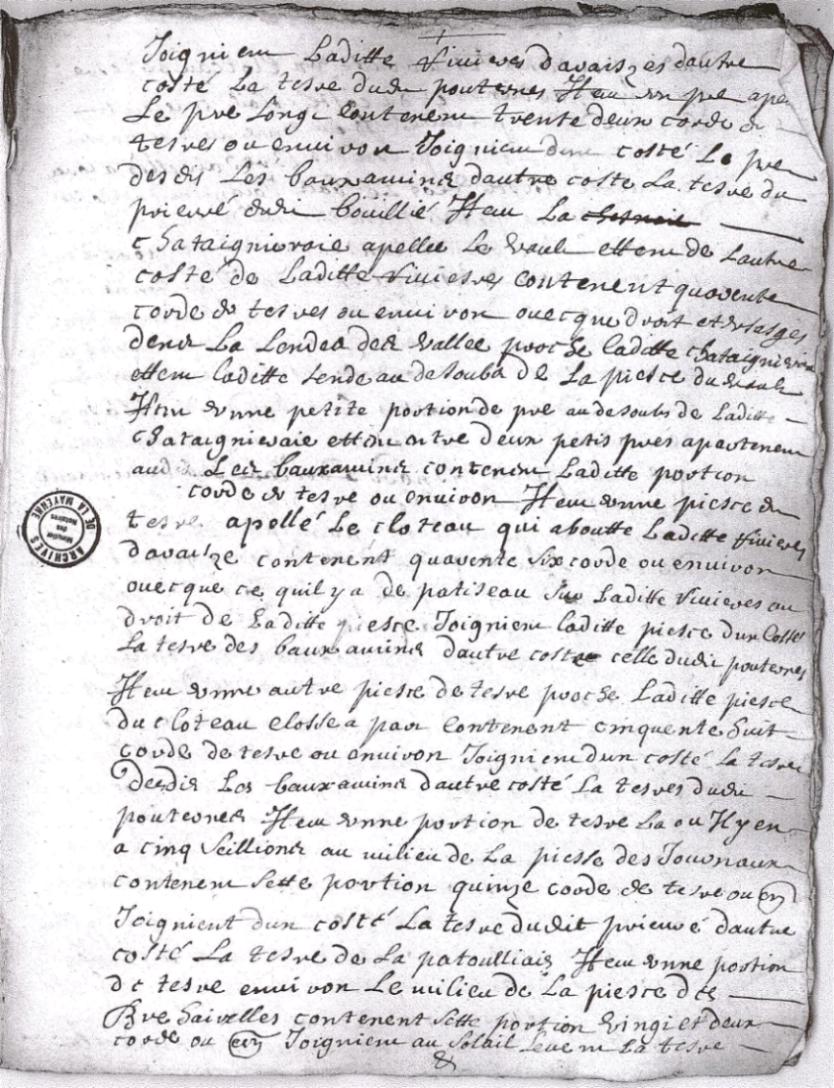 Joignient Laditte Rivieres davaizes dautre
costé La tesre dudi pontesnes Item un pre apelé
Le pre Longt Contenent trente deux corde de
tesres ou environ Joignient dun costé Le pre
desdis Les bauxamine dautre coste La tesre du
prieuré dudi bouillié Item La
chataigneroie apellee Le Vault ettent de Lautre
costé de Laditte Rivieres contenent quarente
corde de tesres ou environ ovecque droit et usasges
dens La Lende des vallee proche laditte chataigneroie
ettent laditte lende au desoubs de La piesce du Vault
Item unne petite portion de pre au desoubs de Laditte
chataigneraie ettent entre deux petis pres apartenent
audis Les bauxamine contenent Laditte portion
corde de tesre ou environ Item unne piesce de
tesre apellé Le cloteau qui aboutte Laditte Rivieres
davaizé contenent quarente six corde ou environ
ovecque ce quil y a de patiseau sur Laditte Rivieres au
droit de Laditte piesce Joignient laditte piesce dun Costé
La tesre des bauxamine dautre coste celle dudi pontesnes
Item unne autre piesce de tesre proche Laditte piesce
du cloteau closse a part Contenent cinquente huit
corde de tesre ou environ Joignient dun costé La tesre
desdis Les bauxamine dautre costé La tesres dudi
pontesnes Item unne portion de tesre La ou Il y en
a cinq seillions au milieu de La piesse des Journaux
contenent sette portion quinze corde de tesre ou env
Joignient dun costé La tesre dudit prieuré dautre
costé La tesre de La patoulliais Item unne portion
de tesre environ Le milieu de La piesce des
contenent sette portion vingt et deux
corde ou env Joignient au Solail Levent La tesre
ARCHIVES DE LA MAYENNE